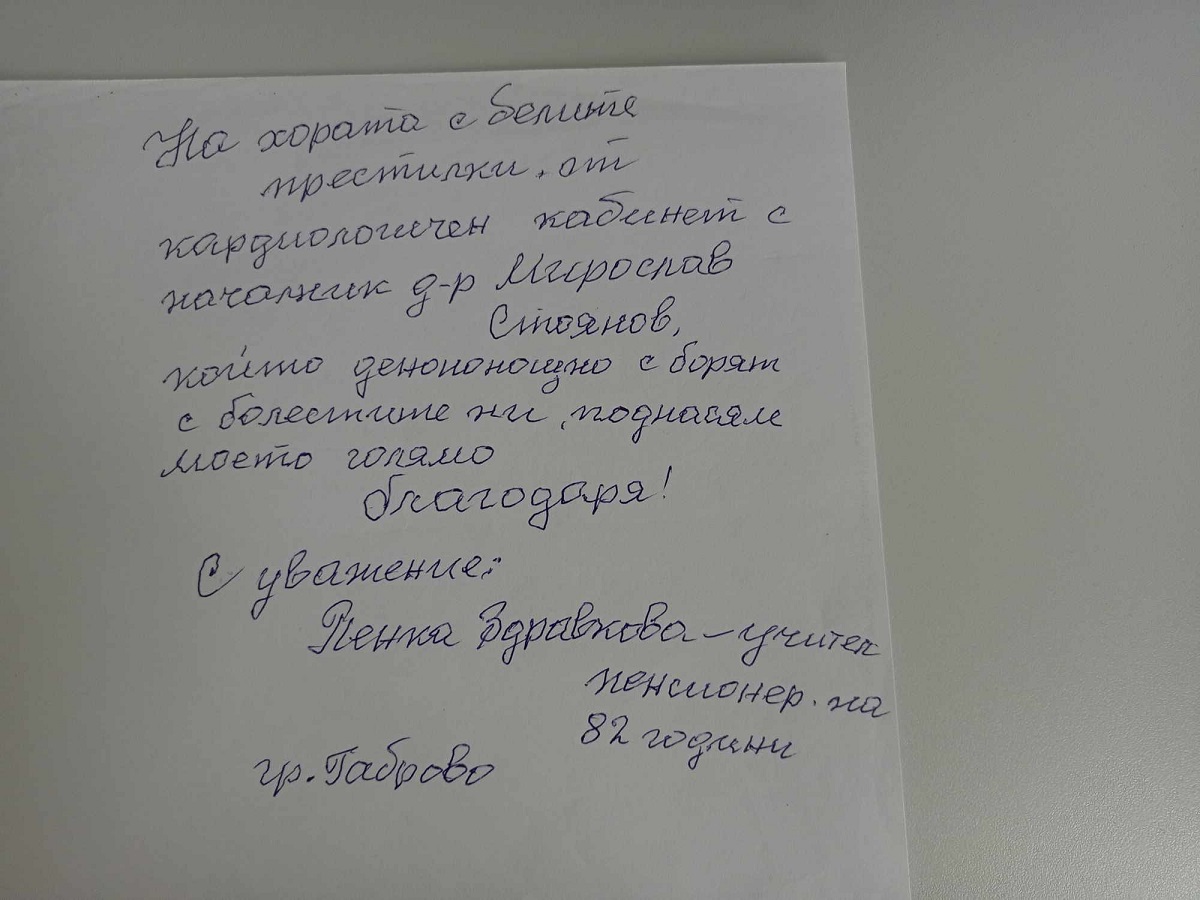 На хората с белите
престилки, от
кардиологичен кабинет с
началник д-р Мирослав
Стоянов,
който денонощно с борят
с болестите ни, поднасям
моето голямо
благодаря!
С уважение:
Пенка Здравкова – учител
пенсионер. на
82 години
гр. Габрово